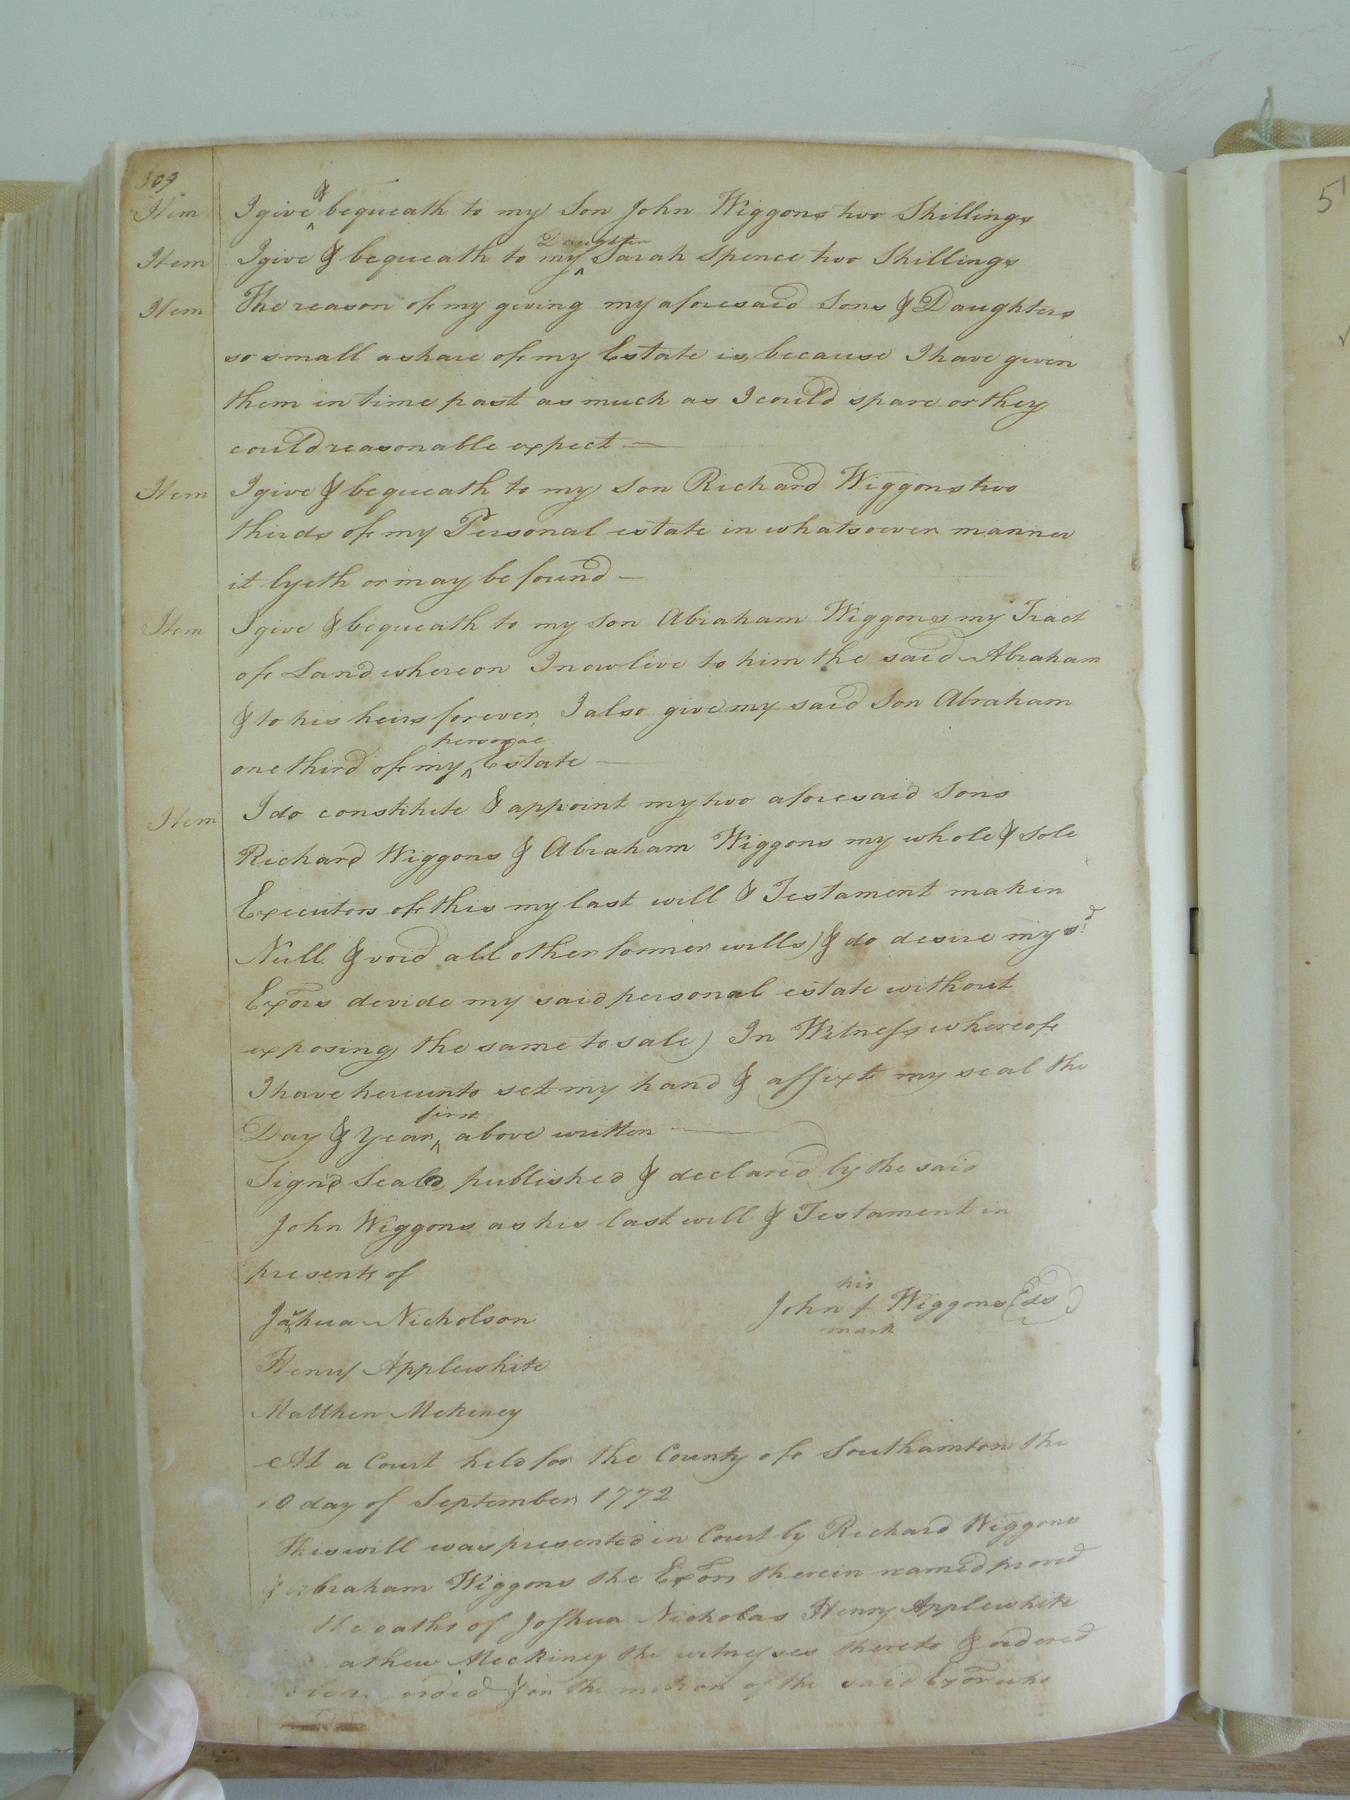 309
Item I give ^& bequeath to my Son John Wiggons two Shillings
Item I give & bequeath to my ^Daughter Sarah Spence two Shillings
Item The reason of my giving my aforesaid Sons & Daughters
so small a share of my Estate is, because I have given
them in time past as much as I could spare or they
could reasonable expect —
Item I give & bequeath to my Son Richard Wiggons two
thirds of my Personal estate in whatsoever manner
it lyeth or may be found —
Item I give & bequeath to my Son Abraham Wiggons my Tract
of Land whereon I now live to him the said Abraham
& to his heirs forever, I also give my said Son Abraham
one third of my ^personal Estate —
Item I do constitute & appoint my two aforesaid Sons
Richard Wiggons & Abraham Wiggons my whole & Sole
Executors of this my last will & Testament makin
Null & void all other former wills) & do desire my sd
Exors devide my said personal estate without
exposing the same to sale) In Witness whereof
I have hereunto set my hand & affixt my seal the
Day & Year ^first above written —
Sign'd Seald published & declared by the said
John Wiggons as his last will & Testament in
presents of
his
John f Wiggons (Ls)
mark
Joshua Nicholson
Henry Applewhite
Matthew Mckiney
At a Court held for the County of Southamton the
10 day of September 1772
This will was presented in Court by Richard Wiggons
& Abraham Wiggons the Exors therein named proved
the oaths of Joshua Nicholas Henry Applewhite
athew Meckiney the witnesses thereto & ordered
orded & on the motion of the said Exor who
5